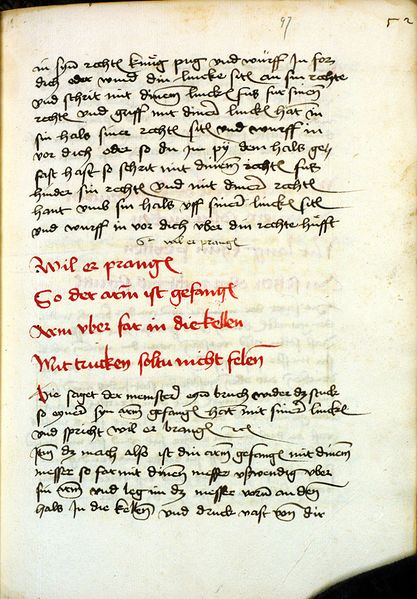 97
52
in syn rechte knüg pug vnd würff In for
dich oder wind din lincke sitē an sin rechte
vnd schrit mit dinem linckē fus für sinen
rechtē vnd griff mit dinerē linckē hant in
sin hals siner rechtē sitē vnd wurff in
vor dich oder so du im py dem hals ge
fast hast so schrit mit dinem rechtē fus
hinder sin rechtē vnd mit dinerē rechtē
hant vmb sin hals vff sinerē linckē sitē
vnd wurff in vor dich vber din rechte hüfft
wil er prangē
Wil er prangē
So der arm ist gefangē
Arm vber far in die kellen
Mit trucken soltu nicht felen
Hie setzet der meinsterē eyn bruch wider dz stuck
so eynerē syn arm gefangē hat mit sinerē linckē
vnd spricht wil er brangē
Itm dz mach alß ist din arm gefangē mit dinem
messer so far mit dinem messer vswendig vber
sin arm vnd leg im dz messer vorn an den
hals In die kellen vnd druck vast von dir